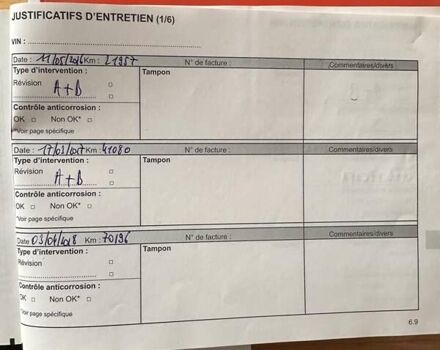 JUSTIFICATIFS D'ENTRETIEN (1/6)
VIN :
Date : 11/05/2016 Km : 21957 N° de facture : Commentaires/divers
Type d'intervention : Tampon
Révision □
A+B □
Contrôle anticorrosion :
OK □ Non OK* □
*Voir page spécifique
Date : 17/03/2017 Km : 41080 N° de facture : Commentaires/divers
Type d'intervention : Tampon
Révision □
A+B □
Contrôle anticorrosion :
OK □ Non OK* □
*Voir page spécifique
Date 03/04/2018 Km : 70196 N° de facture : Commentaires/divers
Type d'intervention : Tampon
Révision □
□
Contrôle anticorrosion :
OK □ Non OK* □
*Voir page spécifique
6.9